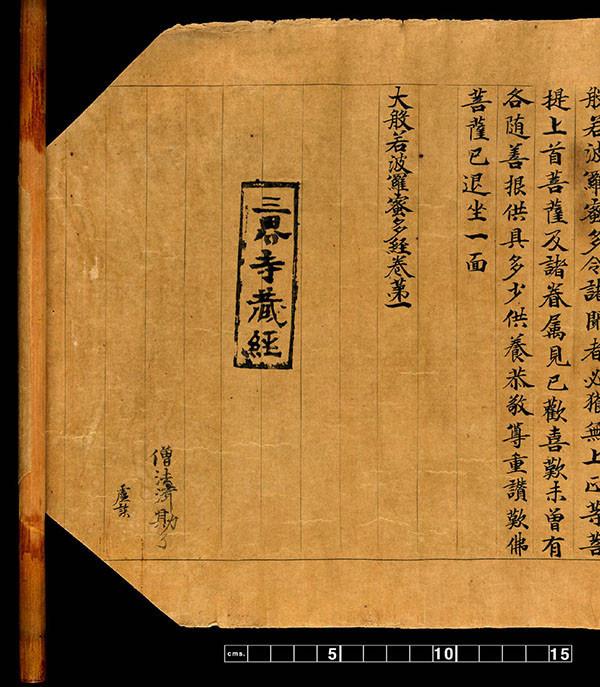 般若波羅蜜多令諸聞者必獲無上正等菩
提上首菩薩及諸眷屬見已歡喜歎未曾有
各随善根供具多少供養恭敬尊重讃歎佛
菩薩已退坐一面
大般若波羅蜜多經卷第一
三界寺藏經
僧法濟勘了
cms. 5 10 15